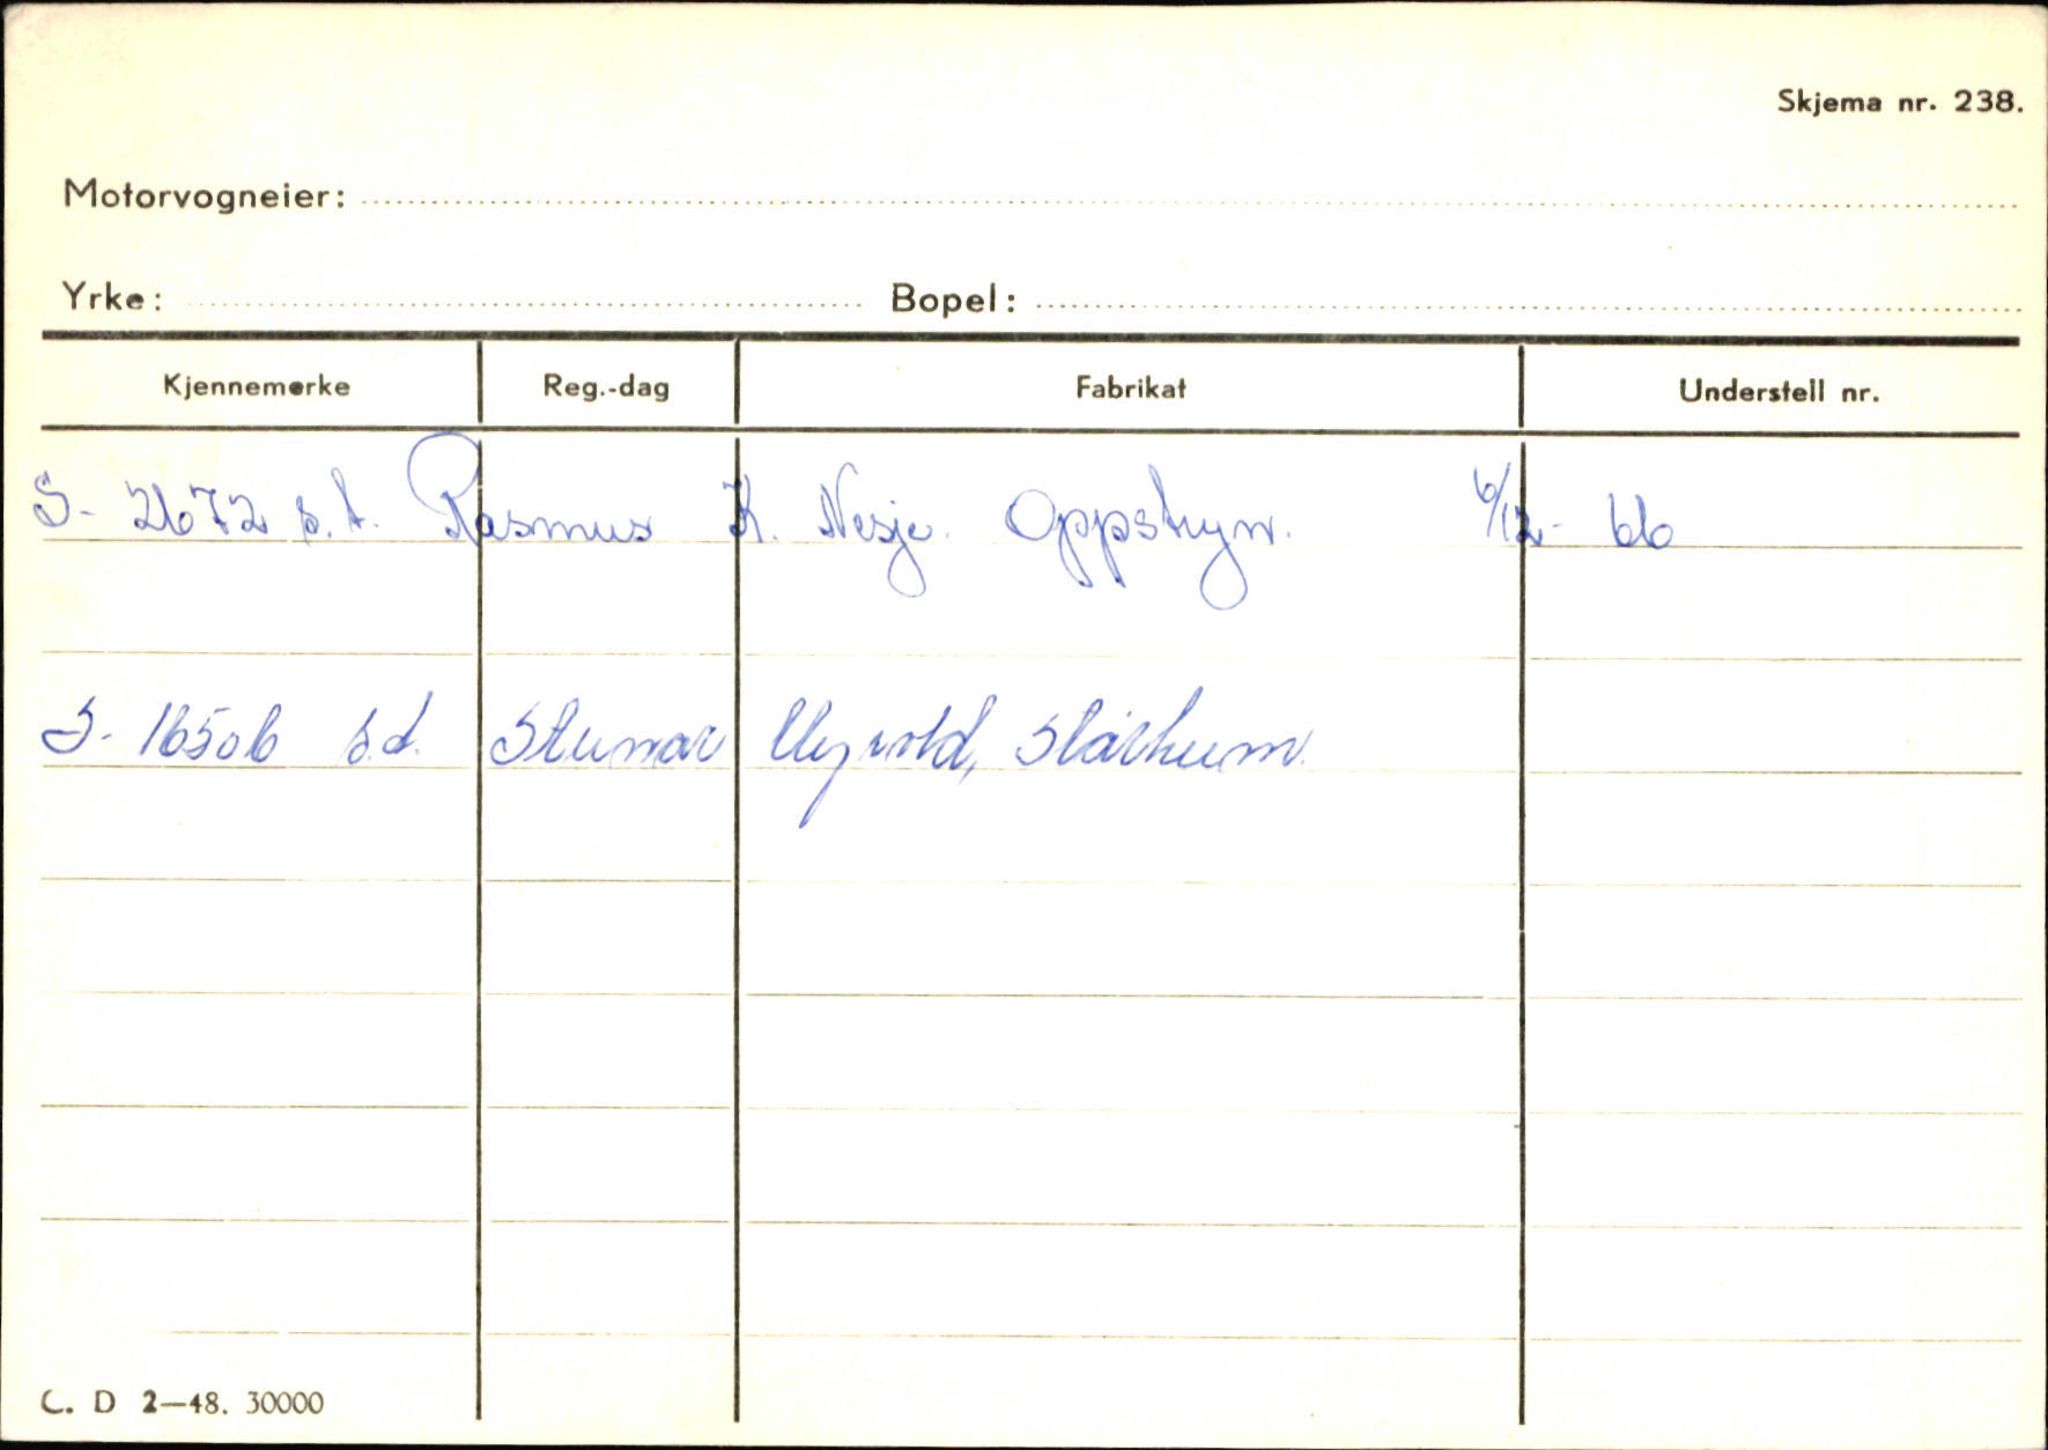 Skjema nr. 238.
Motorvogneier:
Yrke: Bopel:
Kjennemerke Reg.-dag Fabrikat Understell nr.
S- 2672 s.t. Rasmus K. Nesje. Oppstryn. 6/12- 66
S- 16506 s.d. Steinar Myrold, Stårheim.
C. D 2—48. 30000